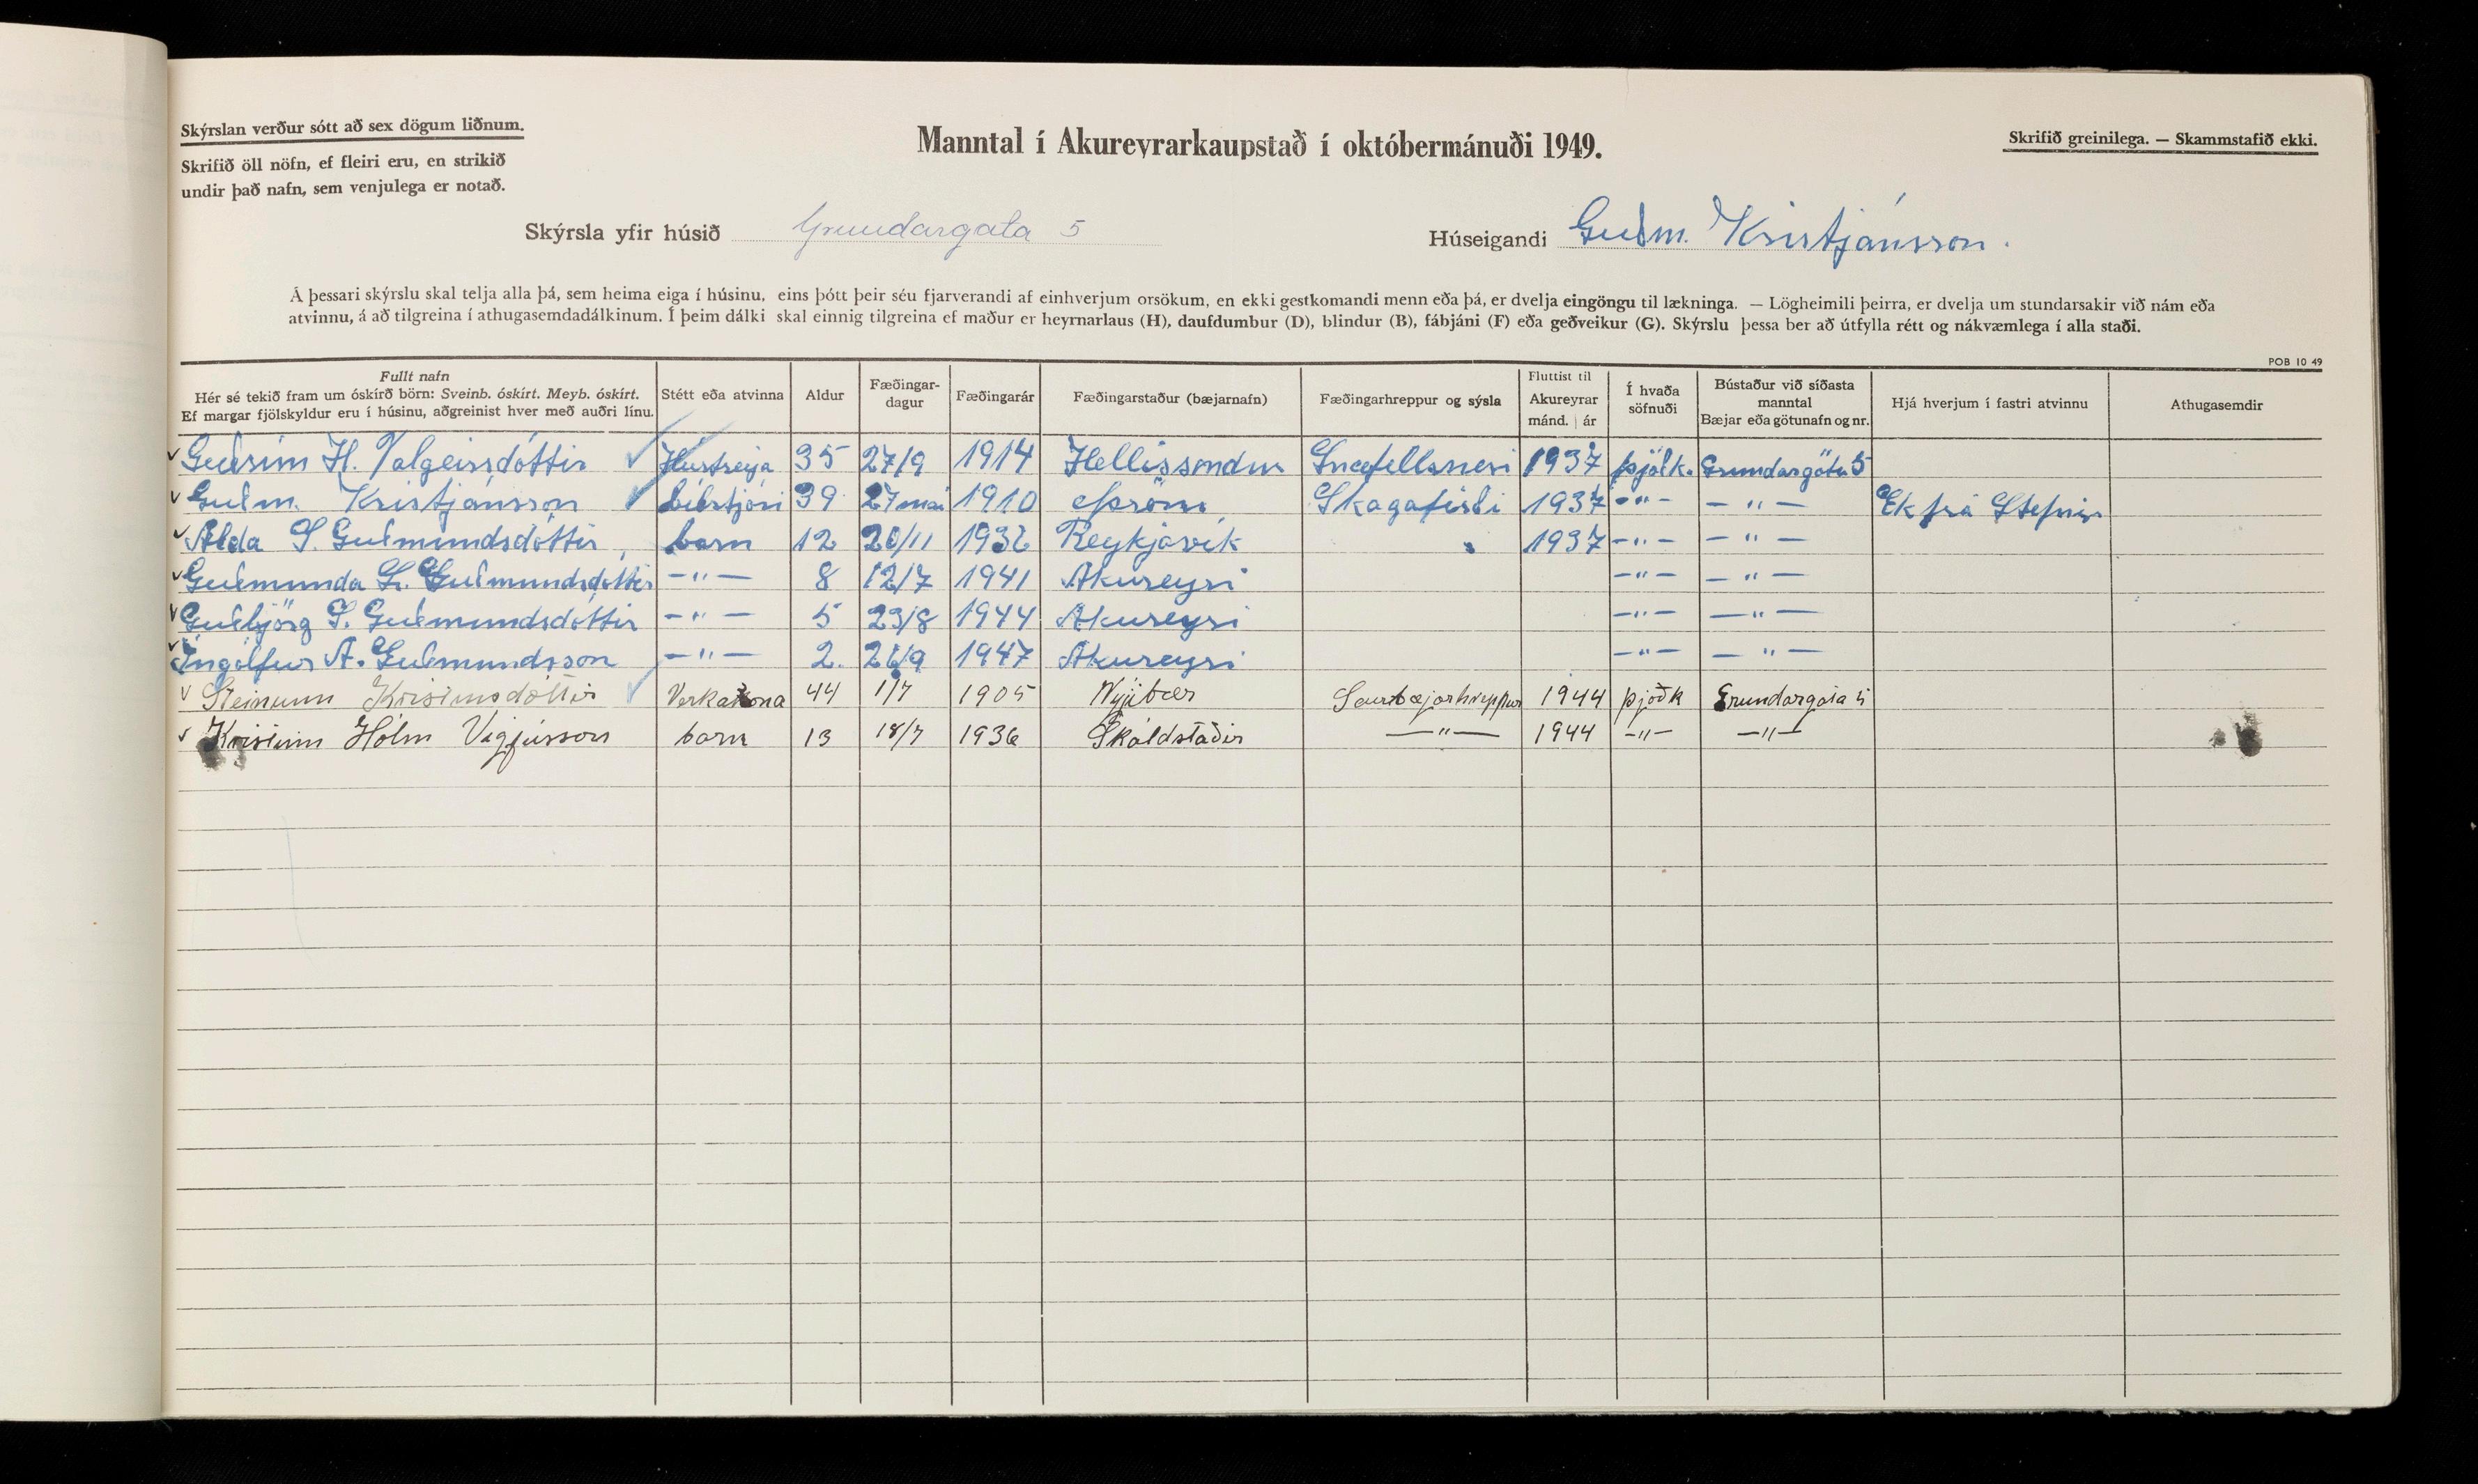 Skýrslan verður sótt að sex dögum liðnum.
Skrifið öll nöfn, ef fleiri eru, en strikið
undir það nafn, sem venjulega er notað.
Manntal í Akureyrarkaupstað í októbermánuði 1949.
Skrifið greinilega. — Skammstafið ekki.
Skýrsla yfir húsið Grundargata 5
Húseigandi Guðm. Kristjánsson.
Á þessari skýrslu skal telja alla þá, sem heima eiga í húsinu, eins þótt þeir séu fjarverandi af einhverjum orsökum, en ekki gestkomandi menn eða þá, er dvelja eingöngu til lækninga. — Lögheimili þeirra, er dvelja um stundarsakir við nám eða
atvinnu, á að tilgreina í athugasemdadálkinum. Í þeim dálki skal einnig tilgreina ef maður er heyrnarlaus (H), daufdumbur (D), blindur (B), fábjáni (F) eða geðveikur (G). Skýrslu þessa ber að útfylla rétt og nákvæmlega í alla staði.
POB 10 49
Fullt nafn
Hér sé tekið fram um óskírð börn: Sveinb. óskírt. Meyb. óskírt.
Ef margar fjölskyldur eru í húsinu, aðgreinist hver með auðri línu.
Stétt eða atvinna
Aldur
Fæðingar-
dagur
Fæðingarár
Fæðingarstaður (bæjarnafn)
Fæðingarhreppur og sýsla
Fluttist til
Akureyrar
mánd. | ár
Í hvaða
söfnuði
Bústaður við síðasta
manntal
Bæjar eða götunafn og nr.
Hjá hverjum í fastri atvinnu
Athugasemdir
Guðrún H. Valgeirsdóttir Húsfreyja 35 27/9 1914 Hellissandur Snæfellsnesi 1937 þjóðk. Grundargötu 5
Guðm. Kristjánsson bílstjóri 39 27 mai 1910 Skagafirði 1937 -"- -"- Ek frá Stefnir
Alda S. Guðmundsdóttir barn 12 20/11 Reykjavík 1937 -"- -"-
Guðmunda Guðmundsdóttir -"- 8 12/7 1941 Akureyri -"- -"-
Guðbjörg S. Guðmundsdóttir -"- 5 23/8 1944 Akureyri -"- -"-
Ingólfur A. Guðmundsson -"- 2. 1947 Akureyri -"- -"-
Steinunn Kristinsdóttir Verkakona 44 1/7 1905 Nýjibær Saurbæjarhreppur 1944 þjóðk Grundargata 5
Kristinn Hólm Vigfússon barn 13 18/7 1936 Skáldstaðir -"- 1944 -"- -"-